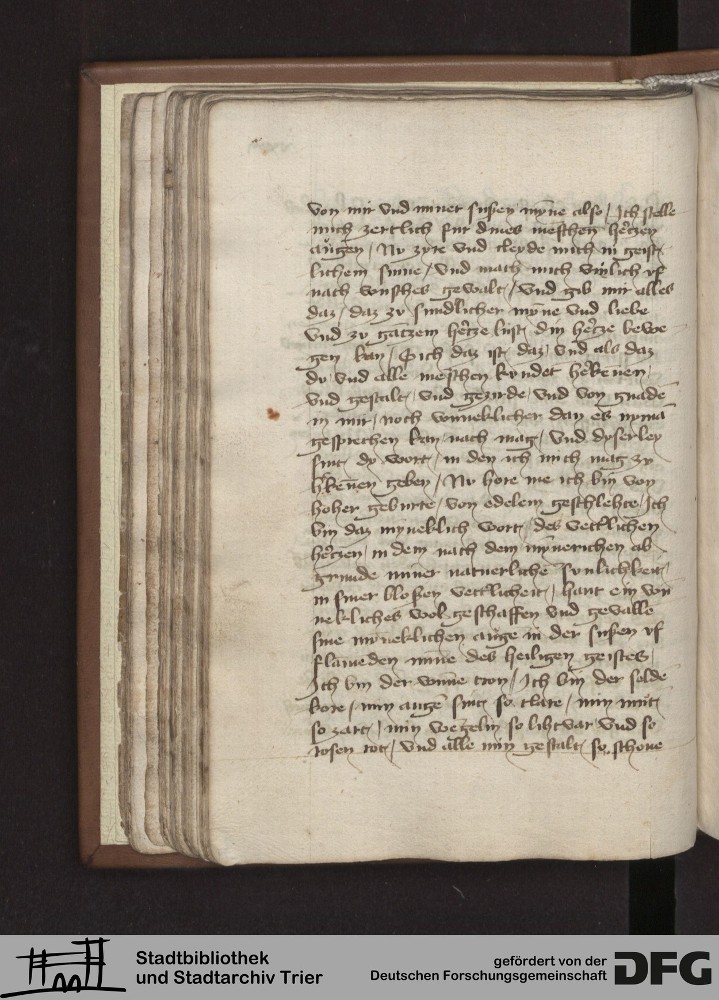 von mir vnd miner sußen mÿne also / Ich stelle
mich zertlich fur dines mēschen hertzen
augen / Nv zÿre vnd cleyde mich in geist
lichem sinne / vnd mach mich vinlich vf
nach wunsches gewalt / vnd gib mir alles
daz / daz zv sundlicher mÿne vnd liebe
vnd zv gatzem hertze lust din hertze bewe
gen kan / O ich daz ist daz vnd als daz
du vnd alle mēschen kundet herkenen
vnd gestalt vnd gezirde vnd von gnadē
in mir / noch wunneklicher dan es nymā
gesprechen kan nach mag / vnd dyserley
sint dy wort / in den ich mich mag zv
herkenen geben / Nv hore me ich bin von
hoher geburte / von edelem geschlehte / Ich
bin daz mÿneklich wort des vetterlichen
hertzen / in dem nach dem mÿnerichen ab
grunde miner naturlichē sunlichkeit
in siner bloßen vetterlicheit / hant ein wun
nekliches wol geschaffen vnd gevalle
sine mÿneklichen auge in der sußen vf
flameden mine des heiligen geistes
Ich bin der wunne tron / Ich bin der selde
krone / min augē sint so clare / min mūt
so zart / min wegelin so lihtvar vnd so
rosen rot / vnd alle min gestalt so schone
Stadtbibliothek
und Stadtarchiv Trier
gefördert von der
Deutschen Forschungsgemeinschaft
DFG